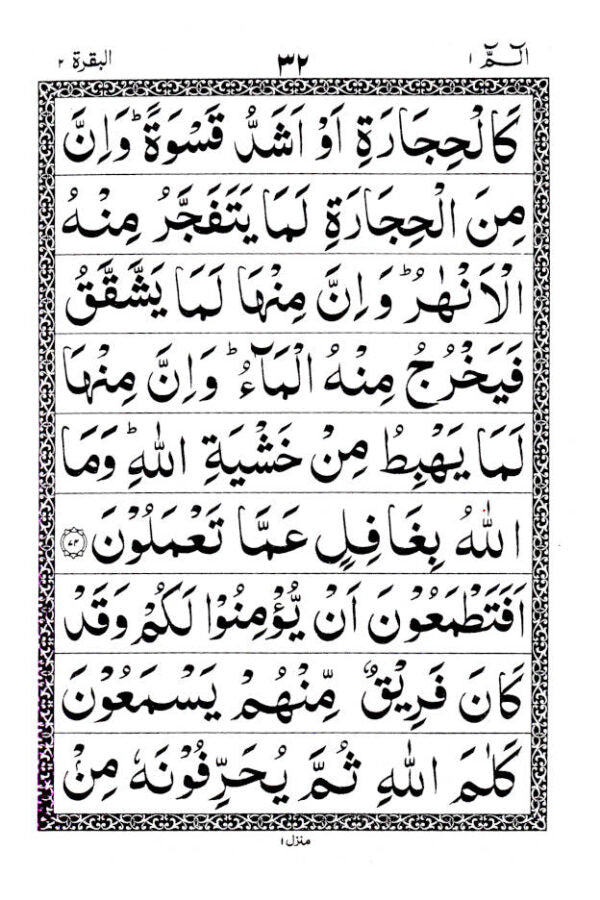 الٓمّٓ ١ ٣٢ البقرة ٢
كَالْحِجَارَةِ اَوْ اَشَدُّ قَسْوَةًؕ وَاِنَّ
مِنَ الْحِجَارَةِ لَمَا يَتَفَجَّرُ مِنْهُ
الْاَنْهٰرُؕ وَاِنَّ مِنْهَا لَمَا يَشَّقَّقُ
فَيَخْرُجُ مِنْهُ الْمَآءُؕ وَاِنَّ مِنْهَا
لَمَا يَهْبِطُ مِنْ خَشْيَةِ اللّٰهِؕ وَمَا
اللّٰهُ بِغَافِلٍ عَمَّا تَعْمَلُوْنَ ٧٤
اَفَتَطْمَعُوْنَ اَنْ يُّؤْمِنُوْا لَكُمْ وَقَدْ
كَانَ فَرِيْقٌ مِّنْهُمْ يَسْمَعُوْنَ
كَلٰمَ اللّٰهِ ثُمَّ يُحَرِّفُوْنَهٗ مِنْۢ
منزل ١